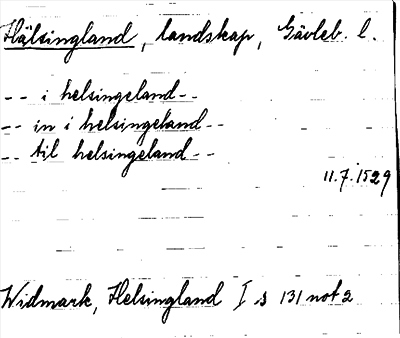 Hälsingland, landskap, Gävleb. l.
-- i helsingeland--
-- in i helsingeland--
-- til helsingeland--
11.7.1529
Widmark, Helsingland I s 131 not 2